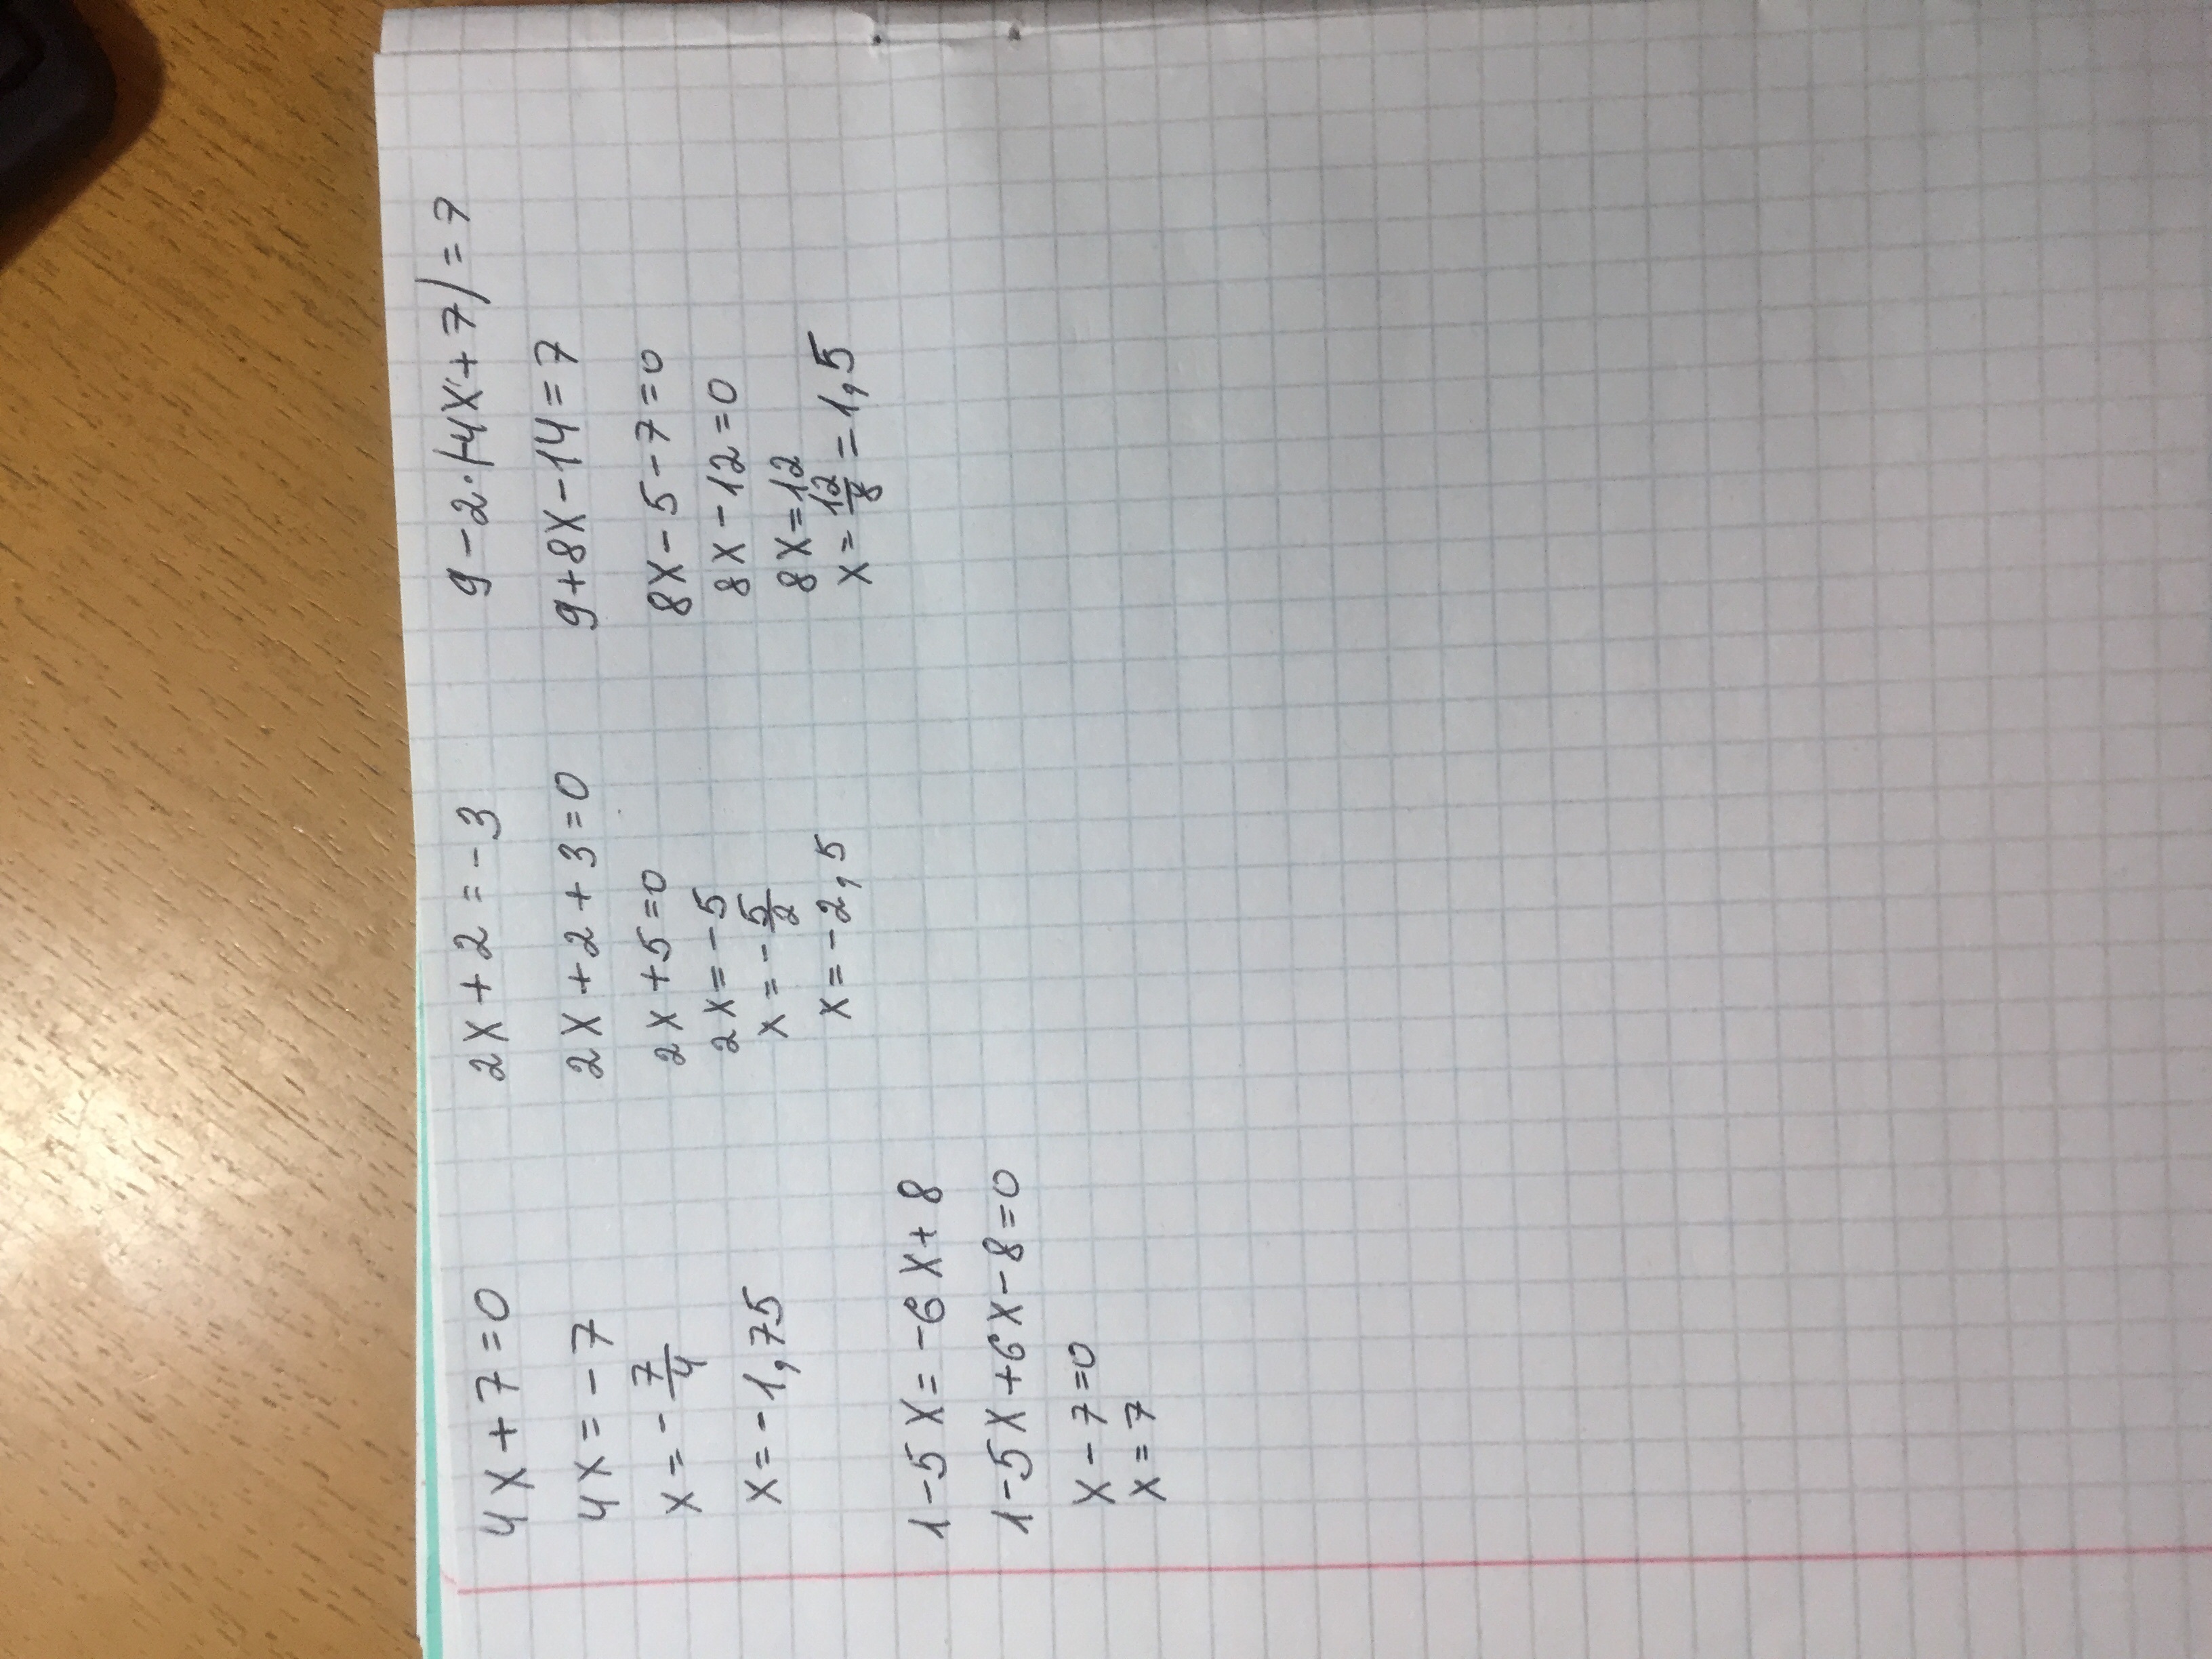 4x+7=0
4x=-7
x=-7/4
x=-1,75
2x+2=-3
2x+2+3=0
2x+5=0
2x=-5
x=-5/2
x=-2,5
9-2·(-4x+7)=7
9+8x-14=7
8x-5-7=0
8x-12=0
8x=12
x=12/8=1,5
1-5x=-6x+8
1-5x+6x-8=0
x-7=0
x=7